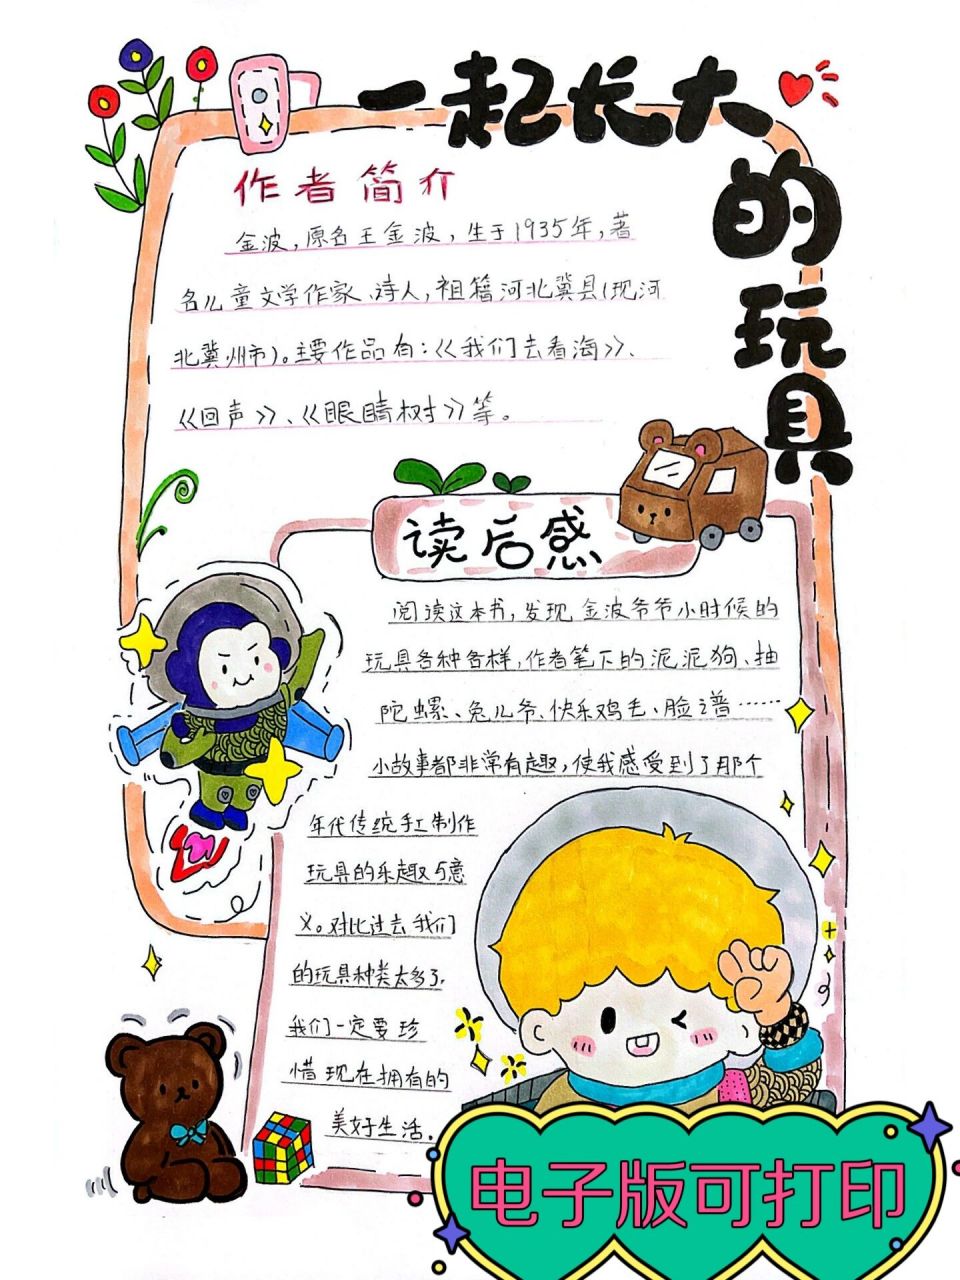 一起长大
的玩具
作者简介
金波,原名王金波,生于1935年,著
名儿童文学作家、诗人,祖籍河北冀县(现河
北冀州市)。主要作品有:《我们去看海》、
《回声》、《眼睛树》等。
读后感
阅读这本书,发现金波爷爷小时候的
玩具各种各样,作者笔下的泥泥狗、抽
陀螺、兔儿爷、快乐鸡毛、脸谱……
小故事都非常有趣,使我感受到了那个
年代传统手工制作
玩具的乐趣与意
义。对比过去我们
的玩具种类太多了,
我们一定要珍
惜现在拥有的
美好生活。
电子版可打印